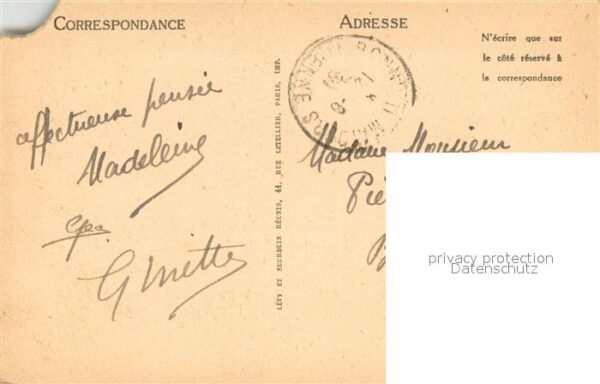 CORRESPONDANCE
ADRESSE
N'écrire que sur
le côté réservé à
la correspondance
affectueuse pensée
Madeleine
Ginette
LÉVY ET NEURDEIN RÉUNIS, 44, RUE LETELLIER, PARIS, IMP.
Madame Monsieur
privacy protection
Datenschutz